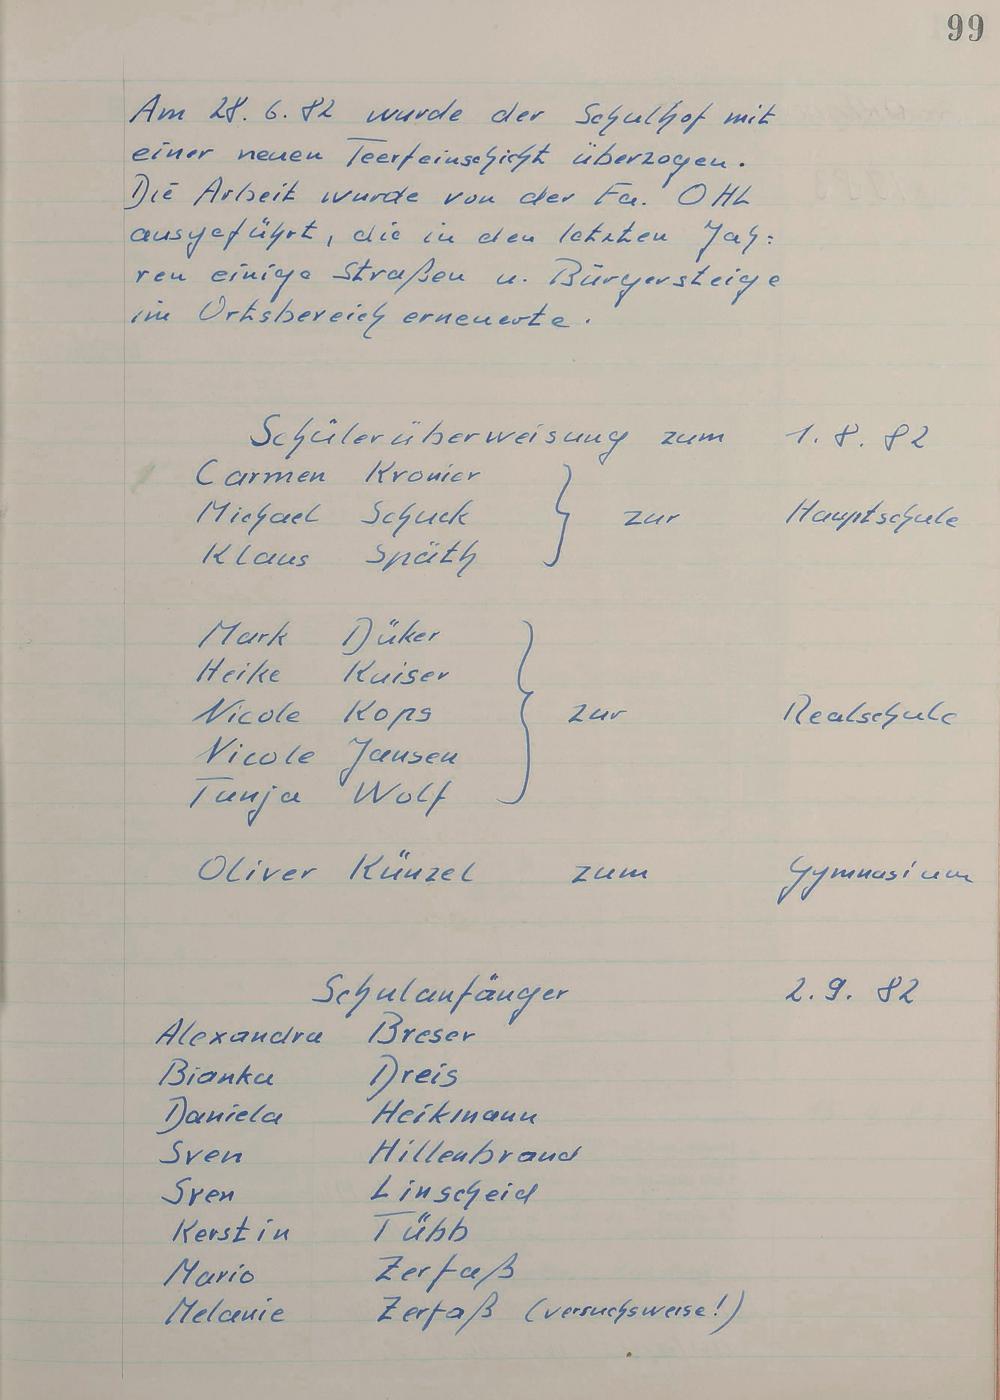 99
Am 28. 6. 82 wurde der Schulhof mit
einer neuen Teerfeinschicht überzogen.
Die Arbeit wurde von der Fa. OHL
ausgeführt, die in den letzten Jah=
ren einige Straßen u. Bürgersteige
im Ortsbereich erneuerte.
Schülerüberweisung zum 1. 8. 82
Carmen Kronier
Michael Schuck } zur Hauptschule
Klaus Späth
Mark Düker
Heike Kaiser
Nicole Kops } zur Realschule
Nicole Jansen
Tanja Wolf
Oliver Künzel zum Gymnasium
Schulanfänger 2. 9. 82
Alexandra Breser
Bianka Dreis
Daniela Heikmann
Sven Hillenbrand
Sven Linscheid
Kerstin Tübb
Mario Zerfaß
Melanie Zerfaß (versuchsweise!)